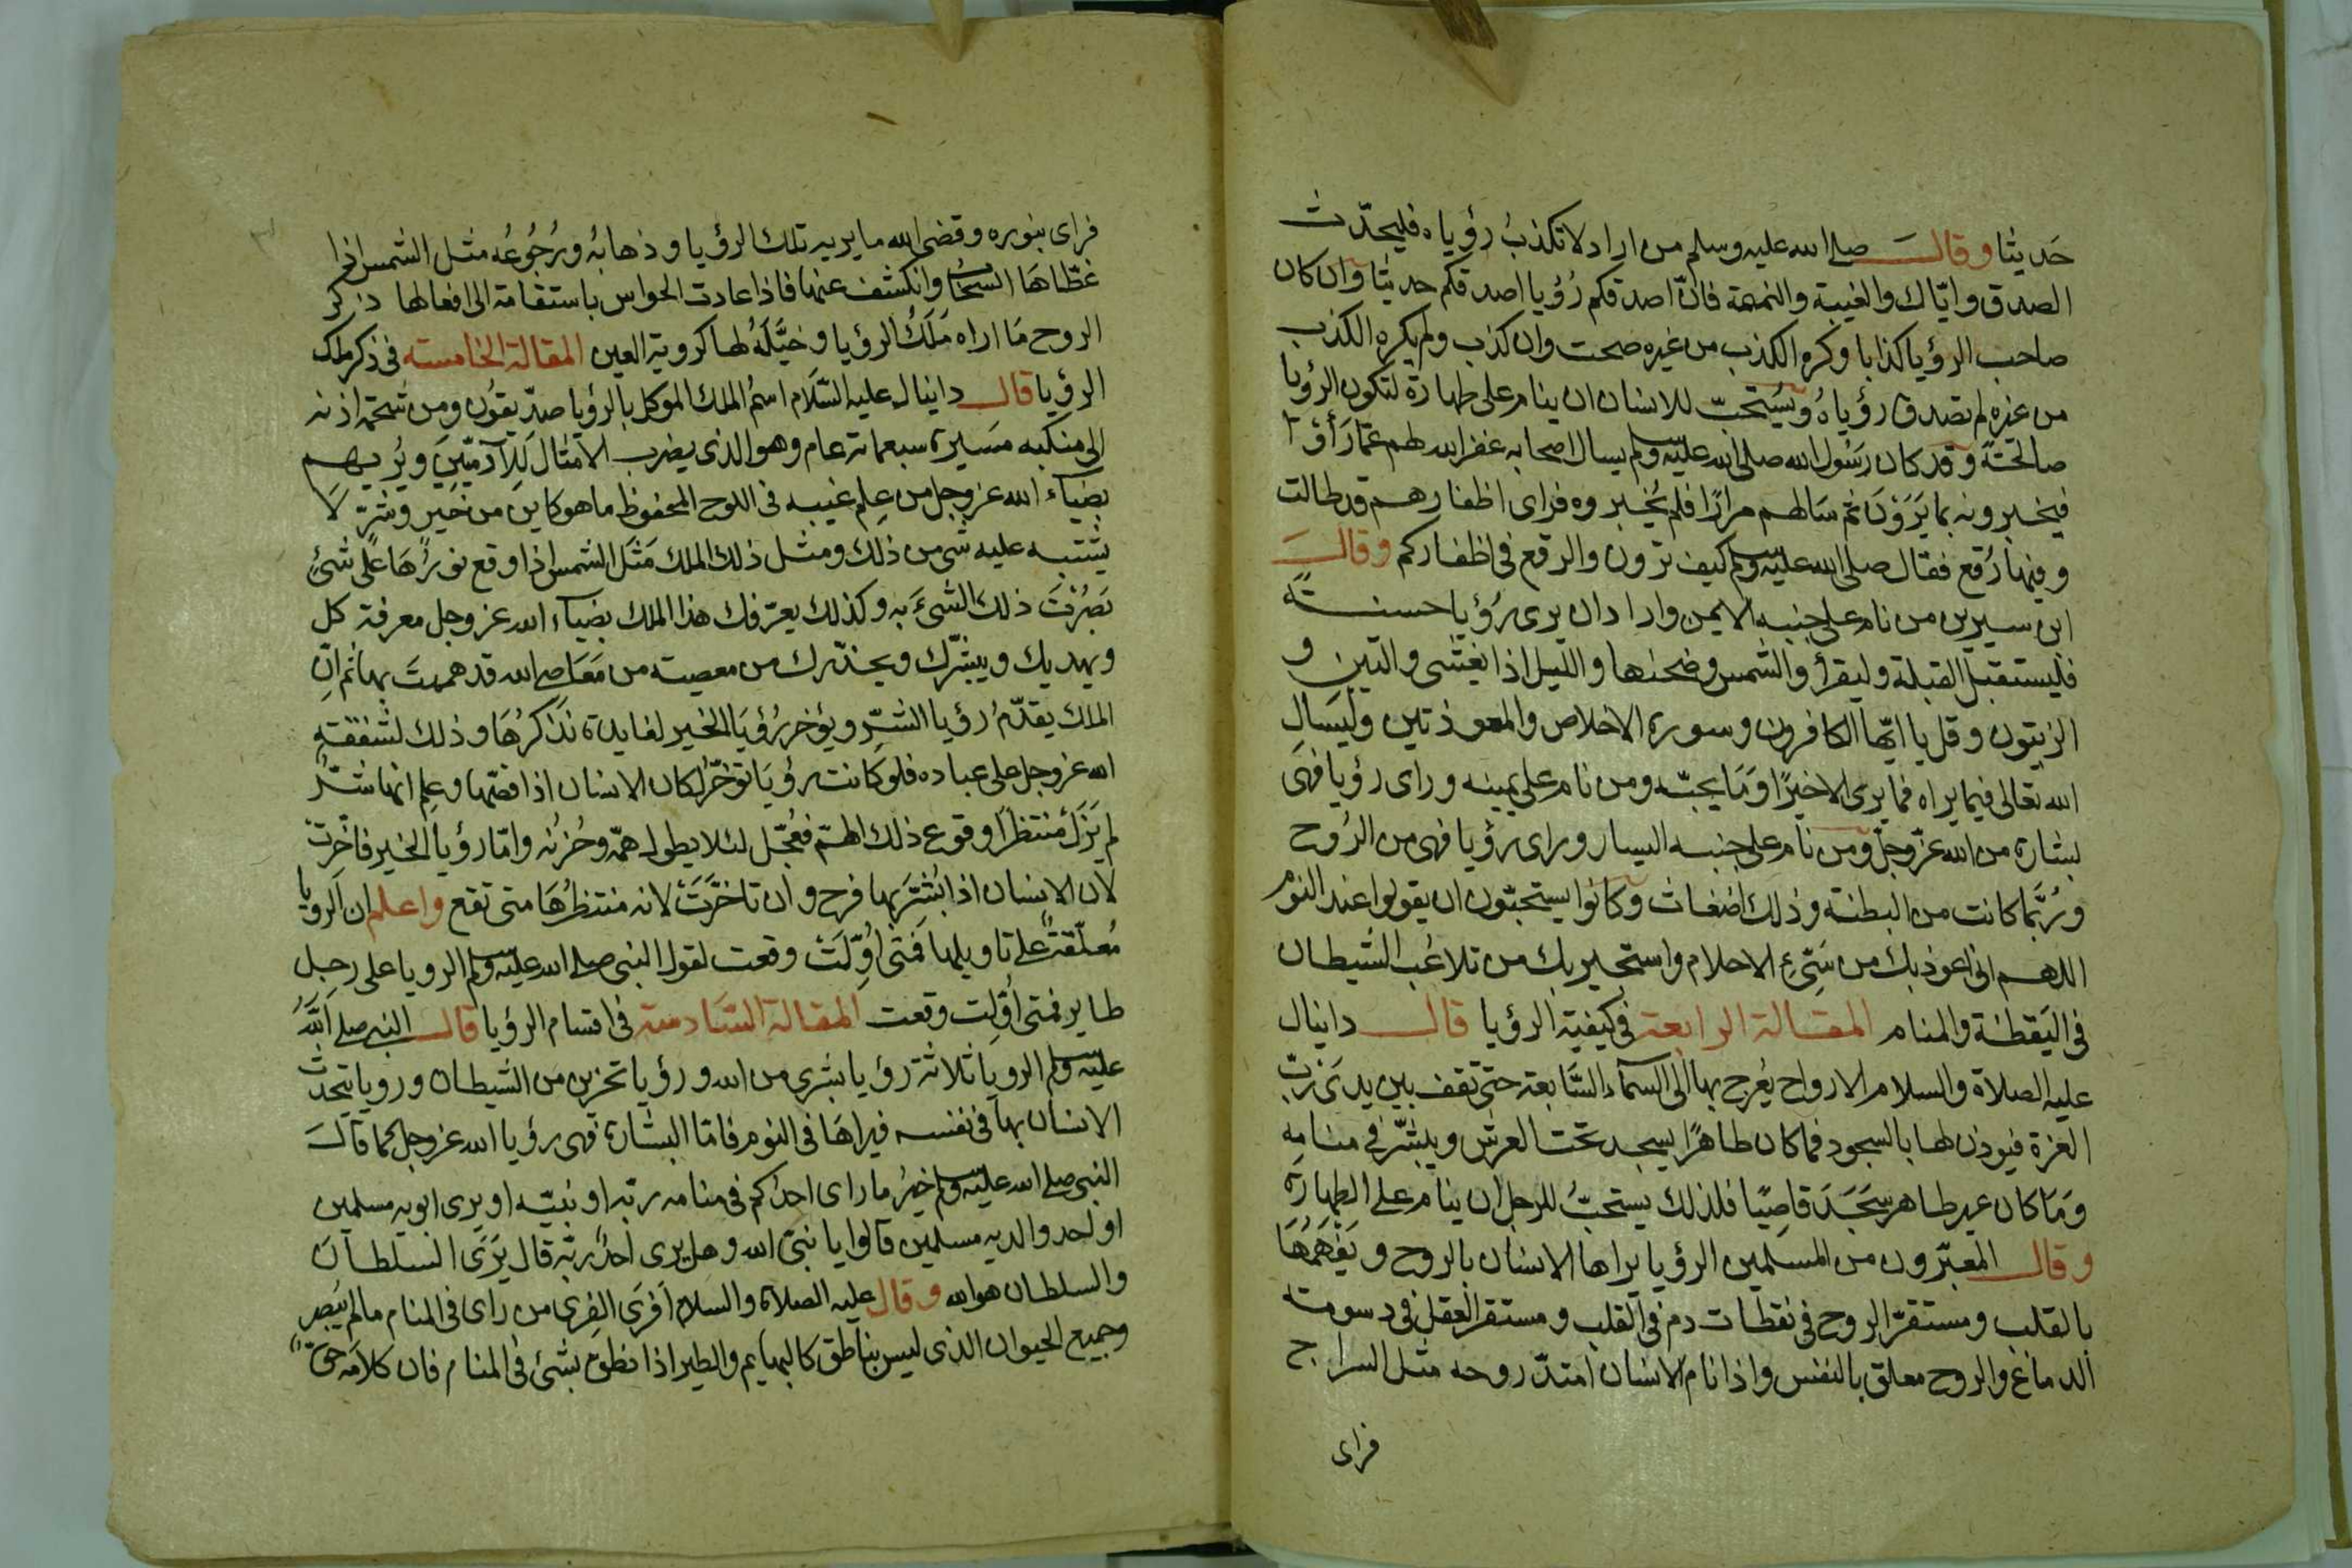 حَديثا وقالَ صلى الله عليه وسلم من اراد لا تكذبُ رؤياه فليحدّث
الصدق واياك والغيبة والنميمة فانّ اصدقكم رُؤيا اصدقكم حديثا وان كان
صاحب الرؤيا كذابا وكره الكذب من غيره صحت وان كذب ولم يكره الكذب
من غيره لم تصدق رؤياهُ ويُستحبّ للانسان ان ينام على طهارة لتكون الرؤيا
صالحة وقد كان رسُول الله صلى الله عليه وسلم يسال اصحابه غفر الله لهم عمّا رَأوْا
فيخبرونه بما يَرَوْنَ ثم سَالهم مرارًا فلم يُخبروه فراى اظفارهم قد طالت
وفيها رُقع فقال صلى الله عليه وسلم كيف ترون والرقع فى اظفاركم وقالَ
ابن سيرين من نام على جنبه الايمن واراد ان يرى رُؤيا حسنةً
فليستقبل القبلة وليقرأ والشمس وضحٰها والليل اذا يغشى والتين و
الزيتون وقل يا ايّها الكافرون وسورة الاخلاص والمعوذتين وليَسَال
الله تعالى فيما يراه فما يرى الا خيرًا وَمَا يحبّه ومن نام على يمينه وراى رؤيا فهىَ
بشارة من الله عزّ وجلّ ومن نام على جنبه اليسار وراى رؤيا فهى من الرُوح
ورُبّما كانت من البطنة وذلك اضغاث وكانوا يستحبّون ان يقولوا عند النوم
اللهم انى اعوذ بك من سَىّءِ الاحلام واستجير بك من تلاعُب الشيطان
فى اليَقظة والمنام المقالة الرابعة فى كيفية الرؤيا قال دانيال
عليه الصلاة والسلام الارواح يُعرج بها الى السمآء السَّابعة حتى تقف بين يدَىْ ربّ
العزة فيوذن لها بالسجود فما كان طاهرًا يسجد تحت العرش ويبشّر فى منامِه
وَمَا كان غير طاهر سَجَدَ قاصِيًا فلذلك يستحبُّ للرجل ان ينام على الطهارة
وقال المعبّرون من المسلمين الرؤيا يراها الانسان بالروح ويَفهَمُهَا
بالقلب ومستقرّ الروح فى نقطات دم فى القلب ومستقر العقل فى دسومة
الدماغ والروح معلق بالنفس واذا نام الانسان امتدّ روحه مثل السراج
فراى
فراى بنوره وقضى الله ما يريه تلك الرؤيا وذهابُه ورُجُوعُه مثل الشمس اذا
غطّاهَا السحابُ وانكشف عنها فاذا عادت الحواس باستقامة الى افعالها ذكر
الروح مَا اراه مَلَكُ الرؤيا وخيَّلَهُ لها كروية العين المقالة الخامسة فى ذكر ملك
الرؤيا قال دانيال عليه السّلَام اسمُ الملك الموكل بالرؤيا صدِّيقُون ومن شحمة اذنه
الى منكبه مَسَيرة سبعمائة عام وهو الذى يضرب الامثال لِلآدميّينَ ويُريهم
بضيآء الله عز وجل من عِلم غيبه فى اللوح المحفوظ ما هو كاين من خَير وشرّ لَا
يشتبه عليه شى من ذلك ومثل ذلك الملك مَثَل الشمس اذا وقع نورُهَا على شئٍ
بَصُرْتَ ذلك الشىءَ به وكذلك يعرّفك هذا الملك بضيآء الله عز وجل معرفة كل
ويهديك ويبشّرك ويحذّرك من معصية من مَعَاصى الله قد هممتَ بها ثم انّ
الملك يقدّمُ رؤيا الشرّ ويؤخر رُؤيَا الخير لفايدة نَذكرُهَا وذلك لشفقةِ
الله عز وجل على عباده فلو كانت رؤيَا تؤخّرُ لكان الانسان اذا قصّها وعلم انها شرٌّ
لم يَزَلْ منتظرًا وقوع ذلك الهمّ فعُجّل لئلا يطول همّه وحُزنُه وامّا رؤيا الخير فاخّرت
لان الانسان اذا بُشّر بها فرح وان تاخّرَتْ لانه منتظرُهَا متى تقع واعلم ان الرويا
مُعلّقةٌ على تاويلها فمتَى اُوِّلَتْ وقعت لقول النبى صلى الله عليه وسلم الرويا على رجل
طاير فمتى أُوّلت وقعت المقالة السَّادسة فى اقسام الرؤيا قال النبى صلى اللهُ
عليه وسلم الرويا ثلاثة رؤيا بشرى من الله ورؤيا تحزين من الشيطان ورويا يتحدّث
الانسان بها فى نفسه فيراهَا فى النوم فامّا البشارة فهى رؤيا الله عز وجل كما قالَ
النبى صلى الله عليه وسلم خيرُ ما راى احدكم فى منامه ربّه او نبيّه او يرى ابويه مسلمين
او احد والديه مسلمين قالوا يا نبىّ الله وهل يرى احدٌ ربّه قال يَرَى السلطان
والسلطان هو الله وقال عليه الصلاة والسلام أفرَى الفِرى من راى فى المنام ما لم يُبصر
وجميع الحيوان الذى ليس بناطق كالبهايم والطير اذا نطق بشئ فى المنام فان كلامَه حقّ